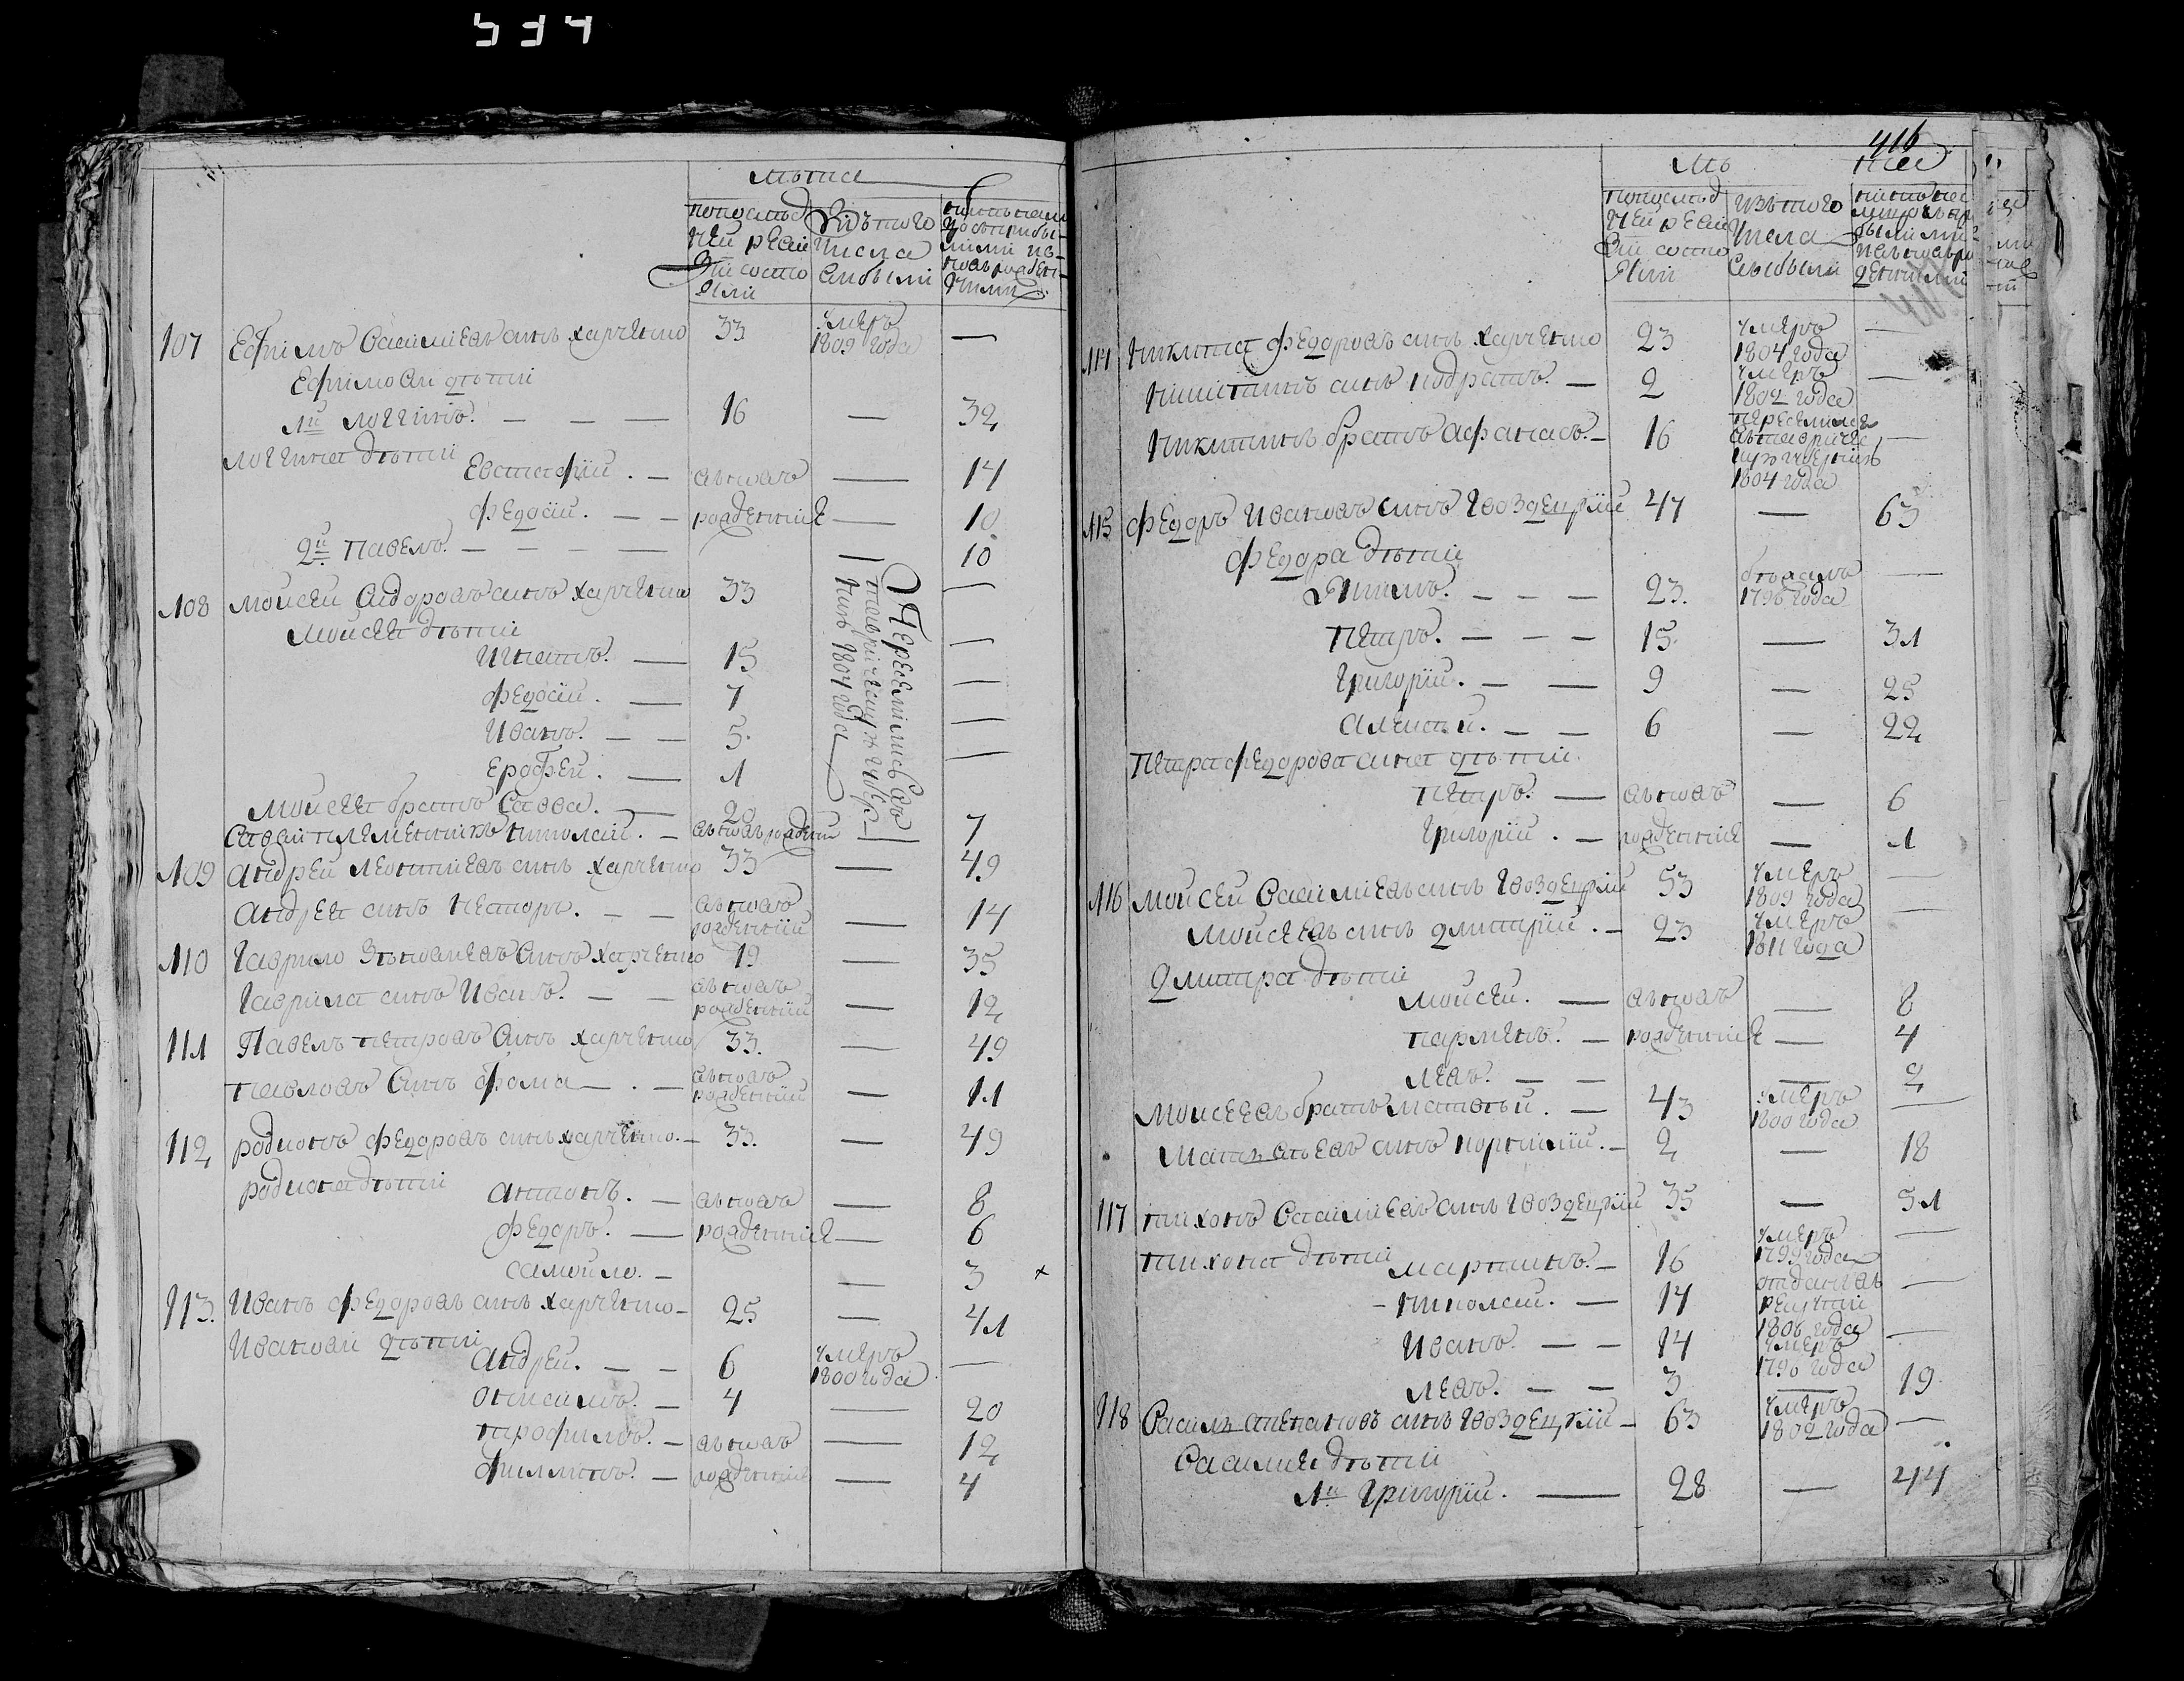 534
лѣта
по последней ревизии состояли
Изъ того числа выбыли
107 Ефимъ Васильевъ сынъ Харченко 33 умеръ 1809 года —
Ефимовы дѣти
1й Логгинъ. — — — 16 — 32
Логгина дѣти
Евстафій. — вновь — 14
Федосій. — — рожденные — 10
2й Павелъ. — — — — — 10
108 Моисей Сидоровъ сынъ Харченко 33 —
Переселились въ таврическую губернию 1804 года
Моисея дѣти
Игнатъ. — 15 —
Федосій. — 7 —
Иванъ. — — 5 —
Ерофей. — 1 —
Моисея братъ Савва. — 20
Саввы племенникъ Николай. — вновь рожденый — 7
109 Андрей Леонтиевъ сынъ Харченко 33 — 49
Андрея сынъ Несторъ. — — вновь рожденный — 14
110 Гаврило Сынъ Харченко 19 — 35
Гаврила сынъ Иванъ. — — вновь рожденный — 12
111 Павелъ Петровъ Сынъ Харченко 33. — 49
Павловъ Сынъ Фома — . — вновь рожденный — 11
112 Родионъ Федоровъ сынъ Харченко. — 33. — 49
Родиона дѣти
Антонъ. — вновь — 8
Федоръ. — рожденные — 6
Самойло. — — 3 ×
113. Иванъ Федоровъ сынъ Харченко — 25 — 41
Ивановы дѣти
Андрей. — — 6 умеръ 1800 года —
Онисимъ. — 4 — 20
Трофимъ. — вновь — 12
Филипъ. — рожденные — 4
416
лѣ та
по последней ревизии состояли
изъ того числа выбыли
114 Никита Федоровъ сынъ Харченко 23 умеръ 1804 года —
Никитинъ сынъ Кодратъ. — 2 умеръ 1802 года —
Никитинъ братъ Афанасъ. — 16 переселился в таврическую губернию 1804 года —
115 Федоръ Ивановъ сынъ Гвоздецкій 47 — 63
Федора дѣти
Якимъ. — — — 23. бѣжалъ 1796 года —
Петръ. — — — 15. — 31
Григорій. — — 9 — 25
Алексѣй. — — 6 — 22
Петра Федорова сына дѣти.
Петръ. — вновь — 6
Григорій. — рожденные — 1
116 Моисей Васильевъ сынъ Гвоздецкій 53 умеръ 1809 года —
Моисеевъ сынъ Дмитрій. — 23 умеръ 1811 года —
Дмитра дѣти
Моисей. — вновь — 8
Парменъ. — рожденные — 4
Левъ. — — — 2
Моисеевъ братъ Матвѣй. — 43 умеръ 1800 года —
Матвѣевъ сынъ Корнилій. — 2 — 18
117 Тихонъ Васильевъ сынъ Гвоздецкій 35 — 51
Тихона дѣти
Мартинъ. — 16 умеръ 1799 года —
Николай. — 14 отданъ в рекруты 1806 года —
Иванъ. — — 14 умеръ 1796 года —
Левъ. — — 3 — 19
118 Василь Степановъ сынъ Гвоздецкій — 63 умеръ 1802 года —
Василия дѣти
1й Григорій. — 28 — 44